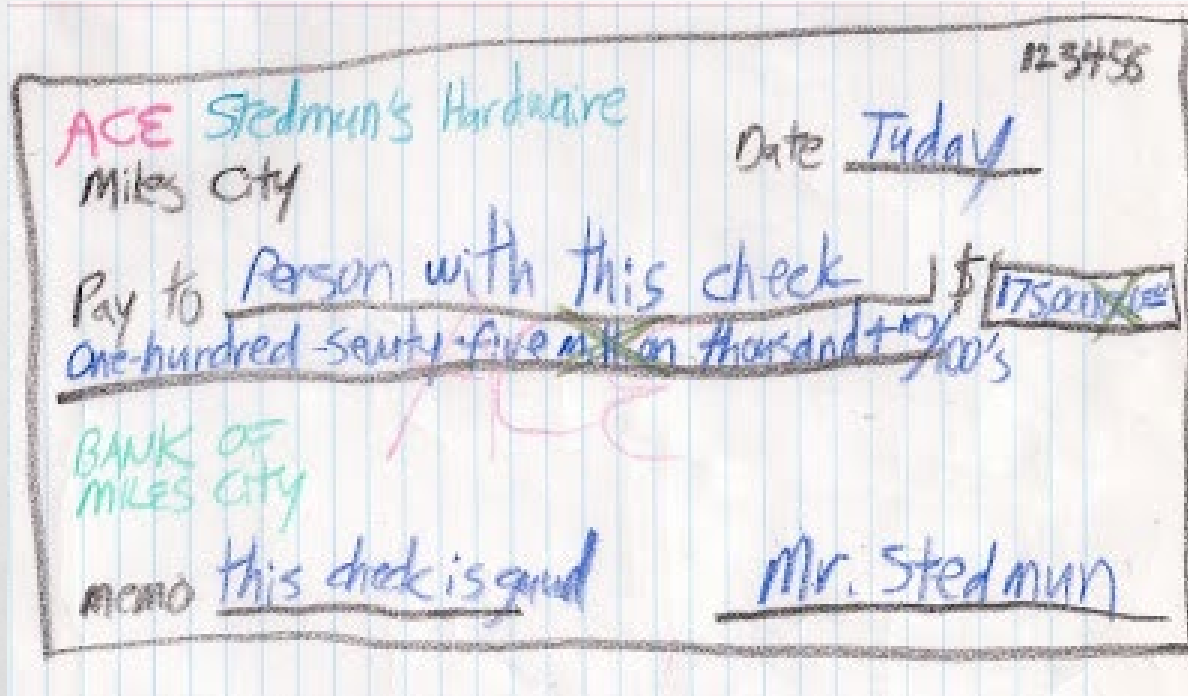 123456
ACE Stedmun's Hardwaire
Miles City
Date Tuday
Pay to Person with this check $
One-hundred-seventy-five million thousand +
BANK OF
MILES CITY
memo this check is guud
Mr. Stedmun